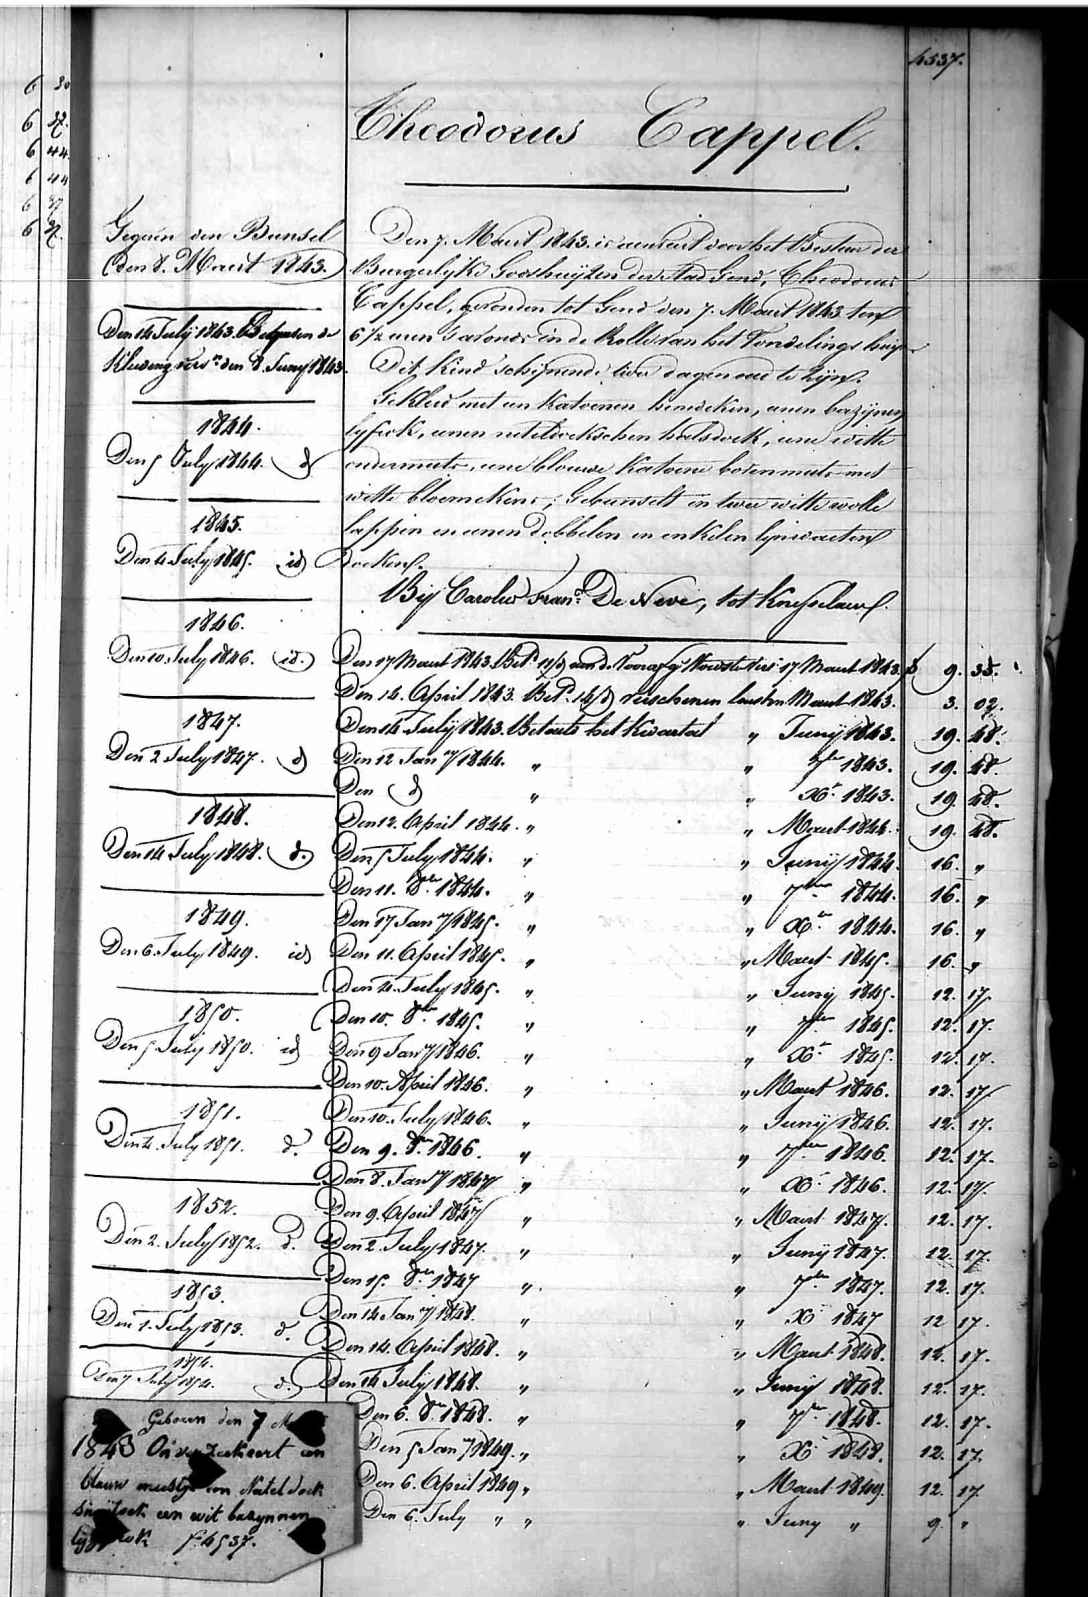 4537.
Theodorus Cappel.
Den 7. Maert 1843. is aenveert door het Bestuer der
Burgerlyke Godshuijzen der Stad Gend, Theodorus
Cappel, gevonden tot Gend den 7. Maert 1843. ten
6 1/2 uren 's avonds in de Rolle van het Vondelingshuijs
Dit Kind schijnende twee dagen oud te zijn.
Gekleed met een Katoenen hemdeken, eenen bazijnen
lyfrok, eenen neteldoekschen halsdoek, eene witte
ondermuts, eene blauwe Katoene bovenmuts met
witte bloemekens; Gebunselt in twee witte wolle
lappen en eenen dobbelen en enkelen lynwaeten
doeken.
Bij Carolus Frans. De Neve, tot Knesselaere.
Gegeven den Bunsel
den 8. Maert 1843.
Den 14 July 1843. Betaelen de
Kleeding vers. den 8. Juny 1843.
1844.
Den 5 July 1844. d
1845.
Den 4 July 1845. id
1846.
Den 10 July 1846. id.
1847.
Den 2 July 1847. d
1848.
Den 14 July 1848. d.
1849.
Den 6 July 1849. id
1850.
Den 5 July 1850. id
1851.
Den 4 July 1851. d.
1852.
Den 2. July 1852. d.
1853.
Den 1. July 1853. d.
1854.
Den 7 July 1854. d.
Den 17 Maert 1843. Bet. 17 Maert 1843. 9. 35.
Den 14. April 1843. Bet. verschenen Maert 1843. 3. 02.
Den 14 July 1843. Betaelt het Kwartael " Junij 1843. 19. 48.
Den 12 Jany 1844. " " 7bre 1843. 19. 48.
Den d " " Xr 1843. 19. 48.
Den 12. April 1844. " " Maert 1844. 19. 48.
Den 5 July 1844. " " Junij 1844. 16. "
Den 11. 8bre 1844. " " 7bre 1844. 16. "
Den 17 Jany 1845. " " Xr 1844. 16. "
Den 11. April 1845. " " Maert 1845. 16. "
Den 4. July 1845. " " Junij 1845. 12. 17.
Den 10. 8bre 1845. " " 7bre 1845. 12. 17.
Den 9 Jany 1846. " " Xr 1845. 12. 17.
Den 10. April 1846. " " Maert 1846. 12. 17.
Den 10. July 1846. " " Junij 1846. 12. 17.
Den 9. 8bre 1846. " " 7bre 1846. 12. 17.
Den 8. Jany 1847 " " Xr 1846. 12. 17.
Den 9. April 1847 " " Maert 1847. 12. 17.
Den 2. July 1847. " " Junij 1847. 12. 17.
Den 15. 8bre 1847 " " 7bre 1847. 12. 17.
Den 14 Jany 1848. " " Xr 1847 12 17.
Den 14. April 1848. " " Maert 1848. 12. 17.
Den 14 July 1848. " " Junij 1848. 12. 17.
Den 6. 8bre 1848. " " 7bre 1848. 12. 17.
Den 5 Jany 1849. " " Xr 1848. 12. 17.
Den 6. April 1849 " " Maert 1849. 12. 17.
Den 6. July " " " Juny " 9. "
Geboren den 7 M
1843 een
blauw mutstje een Netel doek
een wit bazynnen
f. 4537.
6 30
6 37.
6 44
6 44
6 37
6 37.